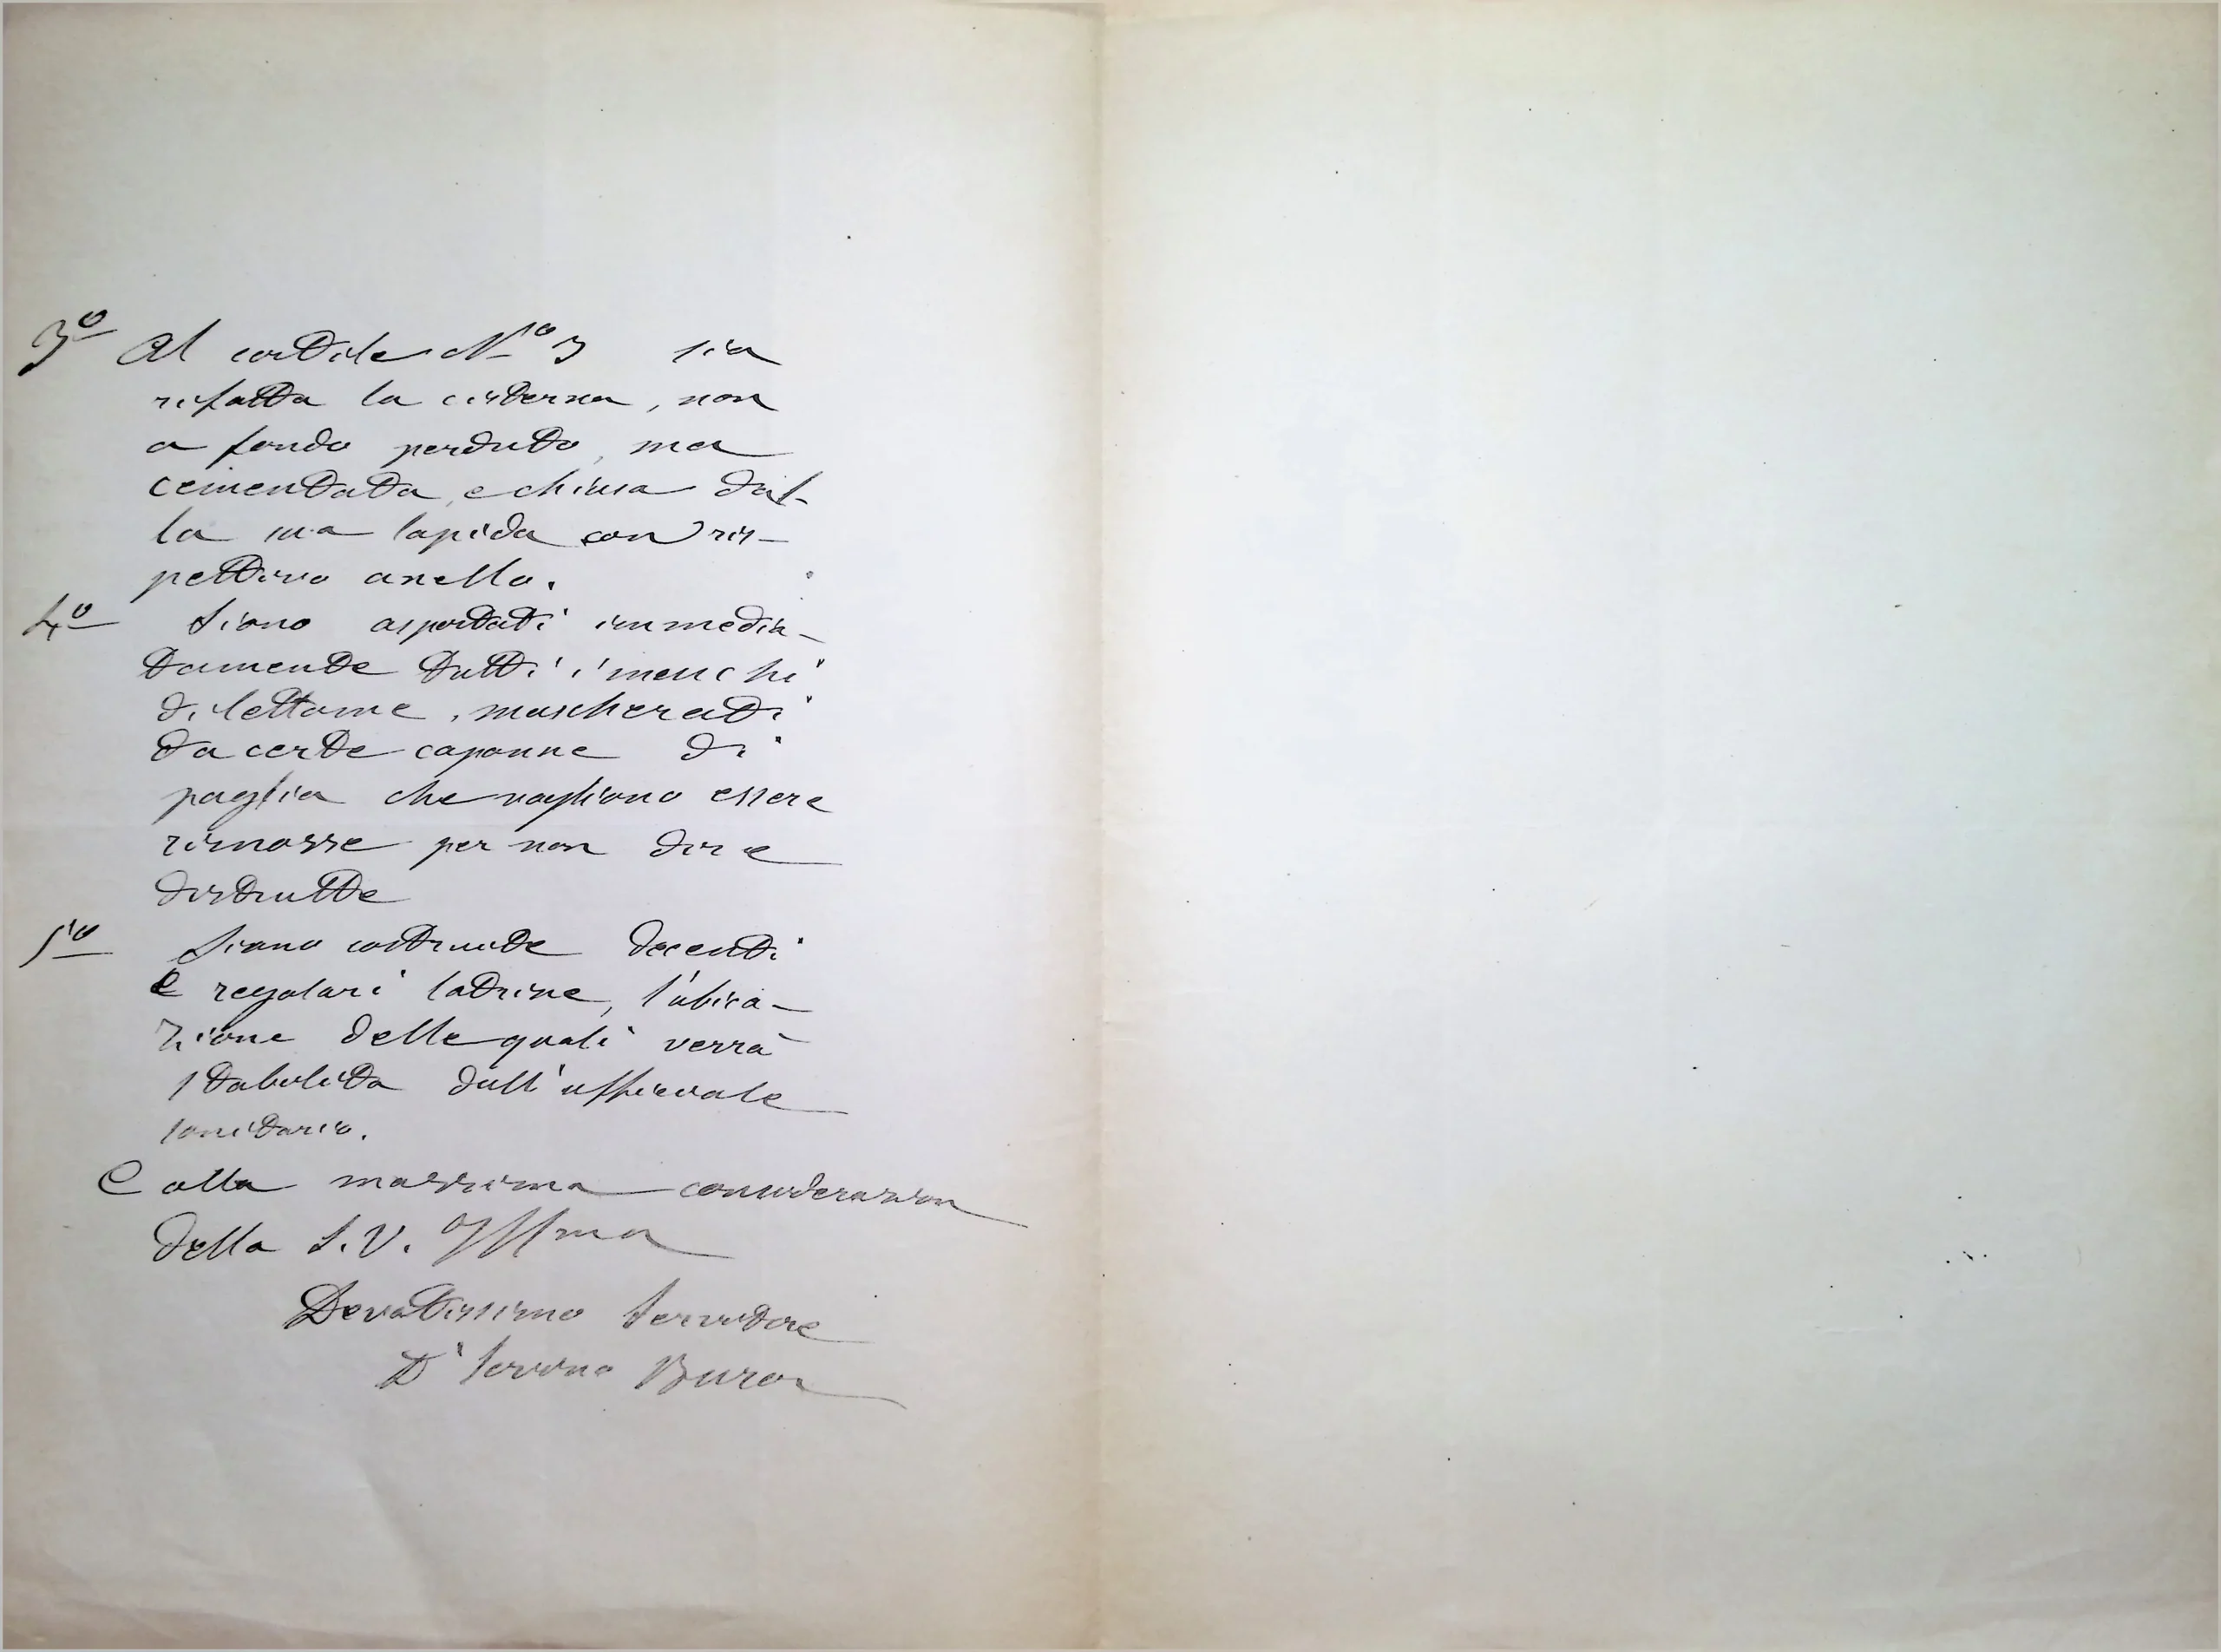 3º Al cortile Nº 3 sia
rifatta la cisterna, non
a fondo perduto, ma
cementata, e chiusa dal-
la sua lapida con ris-
pettivo anello.
4º Siano asportati immedia-
tamente tutti i mucchi
di lettame, mascherati
da certe capanne di
paglia che vogliono essere
rimosse per non dire
distrutte
5º Siano costruite decenti
e regolari latrine, l'ubica-
zione delle quali verrà
stabilita dall'ufficiale
sanitario.
E alla massima considerazion
della S. V. Illma
Devotissimo Servitore
Dr